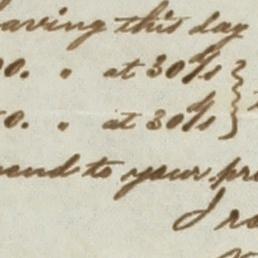 aving this day
0. " at 30%s
0. " at 30%s
end to your pr
I r